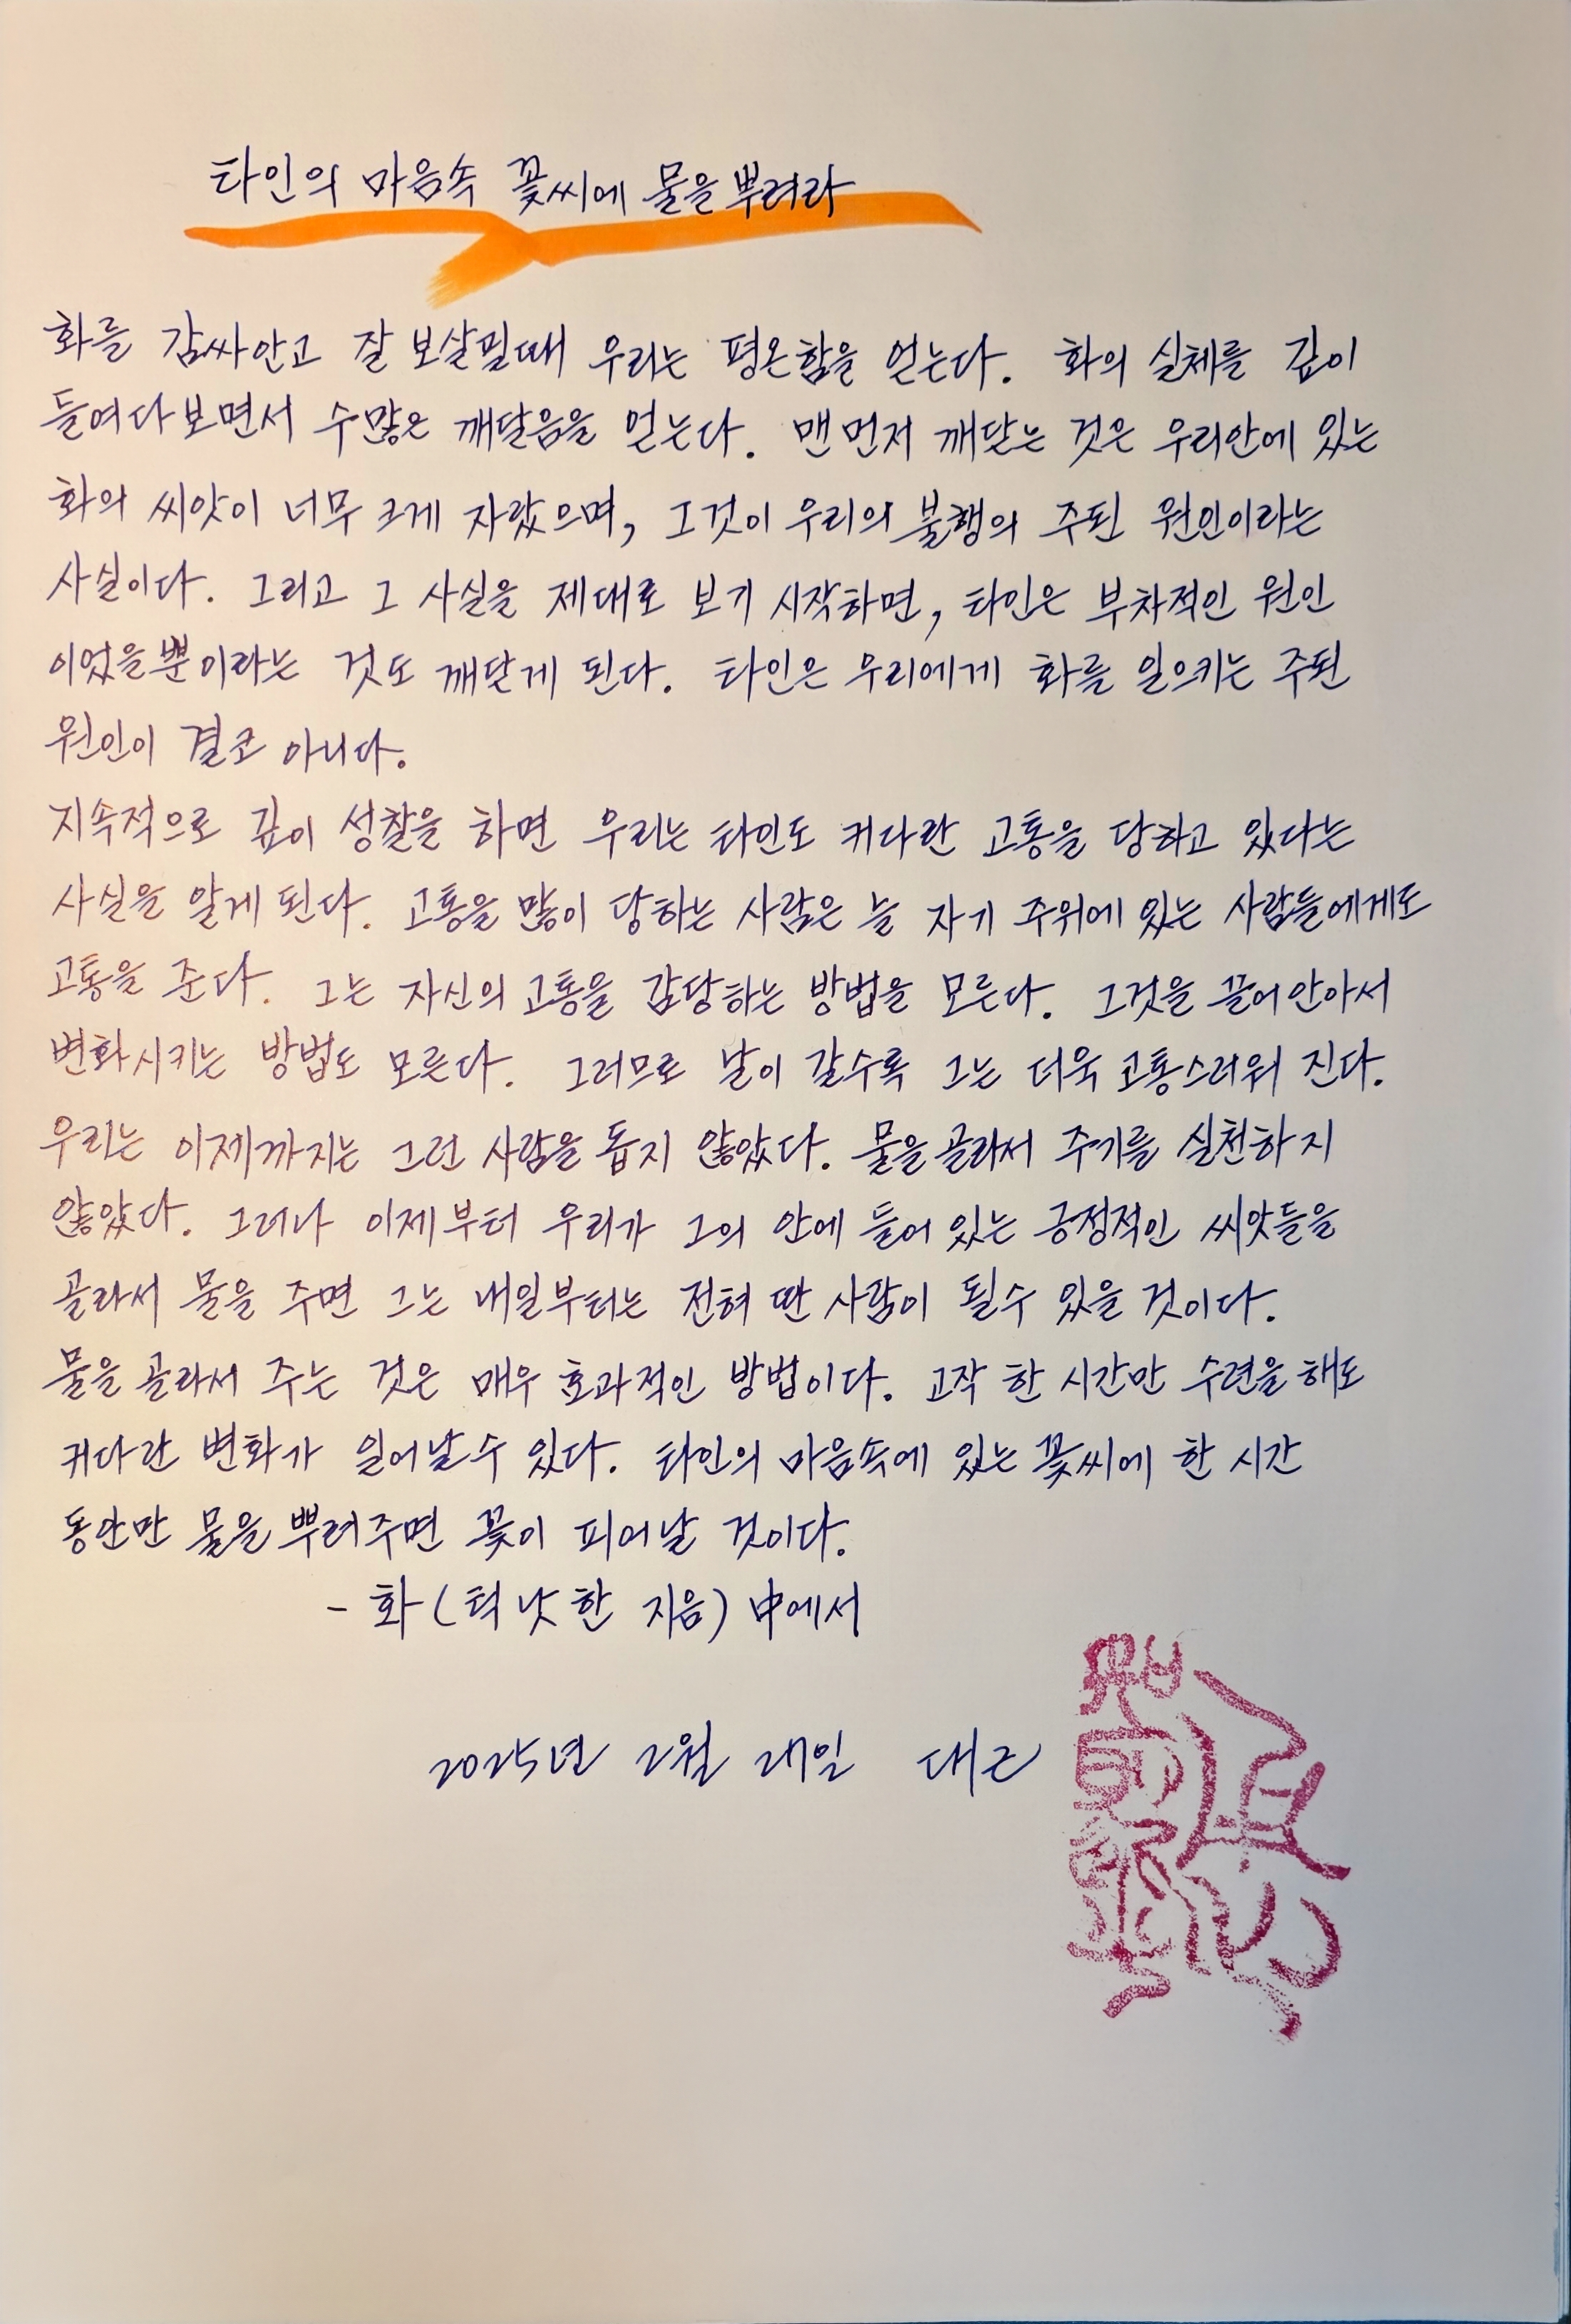 타인의 마음속 꽃씨에 물을 뿌려라
화를 감싸안고 잘 보살필때 우리는 평온함을 얻는다. 화의 실체를 깊이
들여다보면서 수많은 깨달음을 얻는다. 맨먼저 깨닫는 것은 우리안에 있는
화의 씨앗이 너무 크게 자랐으며, 그것이 우리의 불행의 주된 원인이라는
사실이다. 그리고 그 사실을 제대로 보기 시작하면, 타인은 부차적인 원인
이었을뿐이라는 것도 깨닫게 된다. 타인은 우리에게 화를 일으키는 주된
원인이 결코 아니다.
지속적으로 깊이 성찰을 하면 우리는 타인도 커다란 고통을 당하고 있다는
사실을 알게 된다. 고통을 많이 당하는 사람은 늘 자기 주위에 있는 사람들에게도
고통을 준다. 그는 자신의 고통을 감당하는 방법을 모른다. 그것을 끌어안아서
변화시키는 방법도 모른다. 그러므로 날이 갈수록 그는 더욱 고통스러워 진다.
우리는 이제까지는 그런 사람을 돕지 않았다. 물을골라서 주기를 실천하지
않았다. 그러나 이제부터 우리가 그의 안에 들어 있는 긍정적인 씨앗들을
골라서 물을 주면 그는 내일부터는 전혀 딴 사람이 될수 있을 것이다.
물을 골라서 주는 것은 매우 효과적인 방법이다. 고작 한 시간만 수련을 해도
커다란 변화가 일어날수 있다. 타인의 마음속에 있는 꽃씨에 한 시간
동안만 물을 뿌려주면 꽃이 피어날 것이다.
- 화 (틱 낫 한 지음) 中에서
2025년 2월 28일 대근